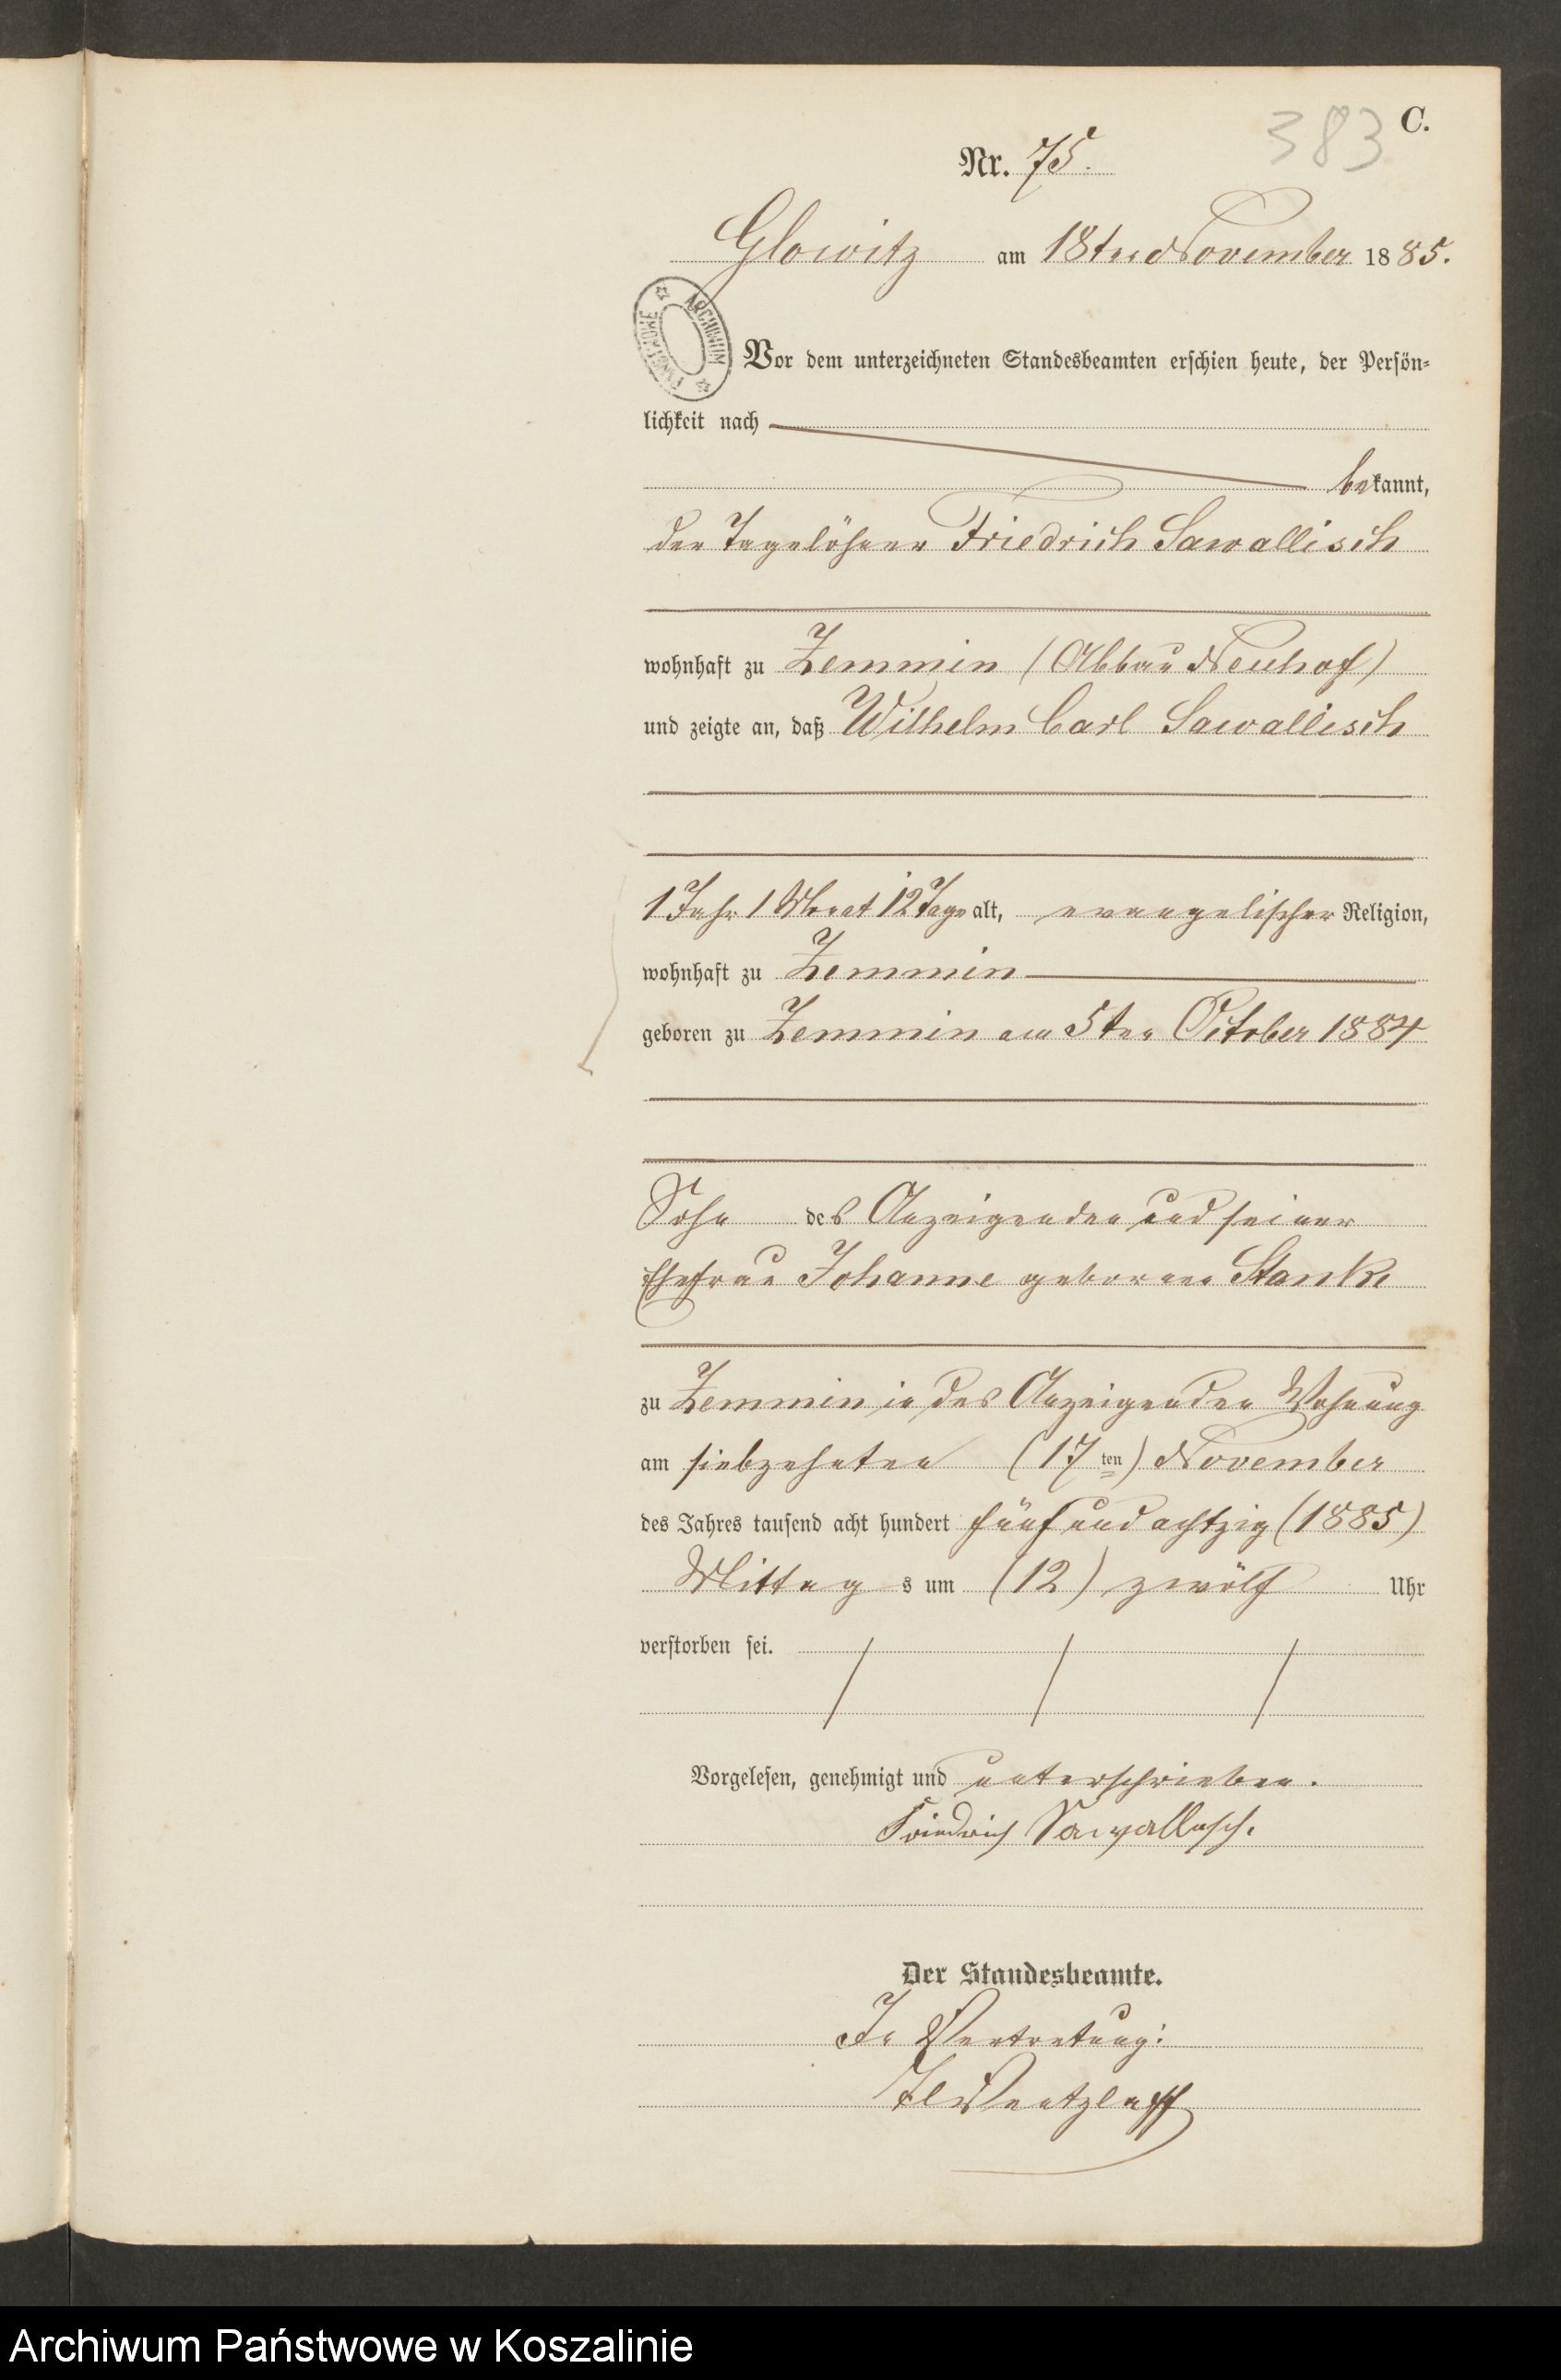 C.
383
Nr. 75.
Glowitz am 18ten November 1885.
ARCHIWUM PAŃSTWOWE
Vor dem unterzeichneten Standesbeamten erschien heute, der Persön-
lichkeit nach
bekannt,
der Tagelöhner Friedrich Sawallisch
wohnhaft zu Zemmin (Abbau Neuhof)
und zeigte an, daß Wilhelm Carl Sawallisch
1 Jahr 1 Monat 12 Tage alt, evangelischer Religion,
wohnhaft zu Zemmin
geboren zu Zemmin am 5ten October 1884
Sohn des Anzeigenden und seiner
Ehefrau Johanne geborene Stanke
zu Zemmin in des Anzeigenden Wohnung
am siebzehnten (17ten) November
des Jahres tausend acht hundert fünf und achtzig (1885)
Mittags um (12) zwölf Uhr
verstorben sei.
Vorgelesen, genehmigt und unterschrieben.
Friedrich Sawallisch.
Der Standesbeamte.
In Vertretung:
Wentzlaff
Archiwum Państwowe w Koszalinie